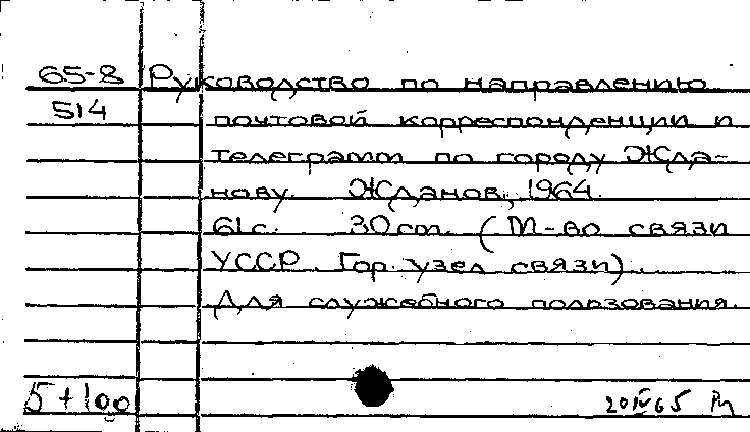 65-8 Руководство по направлению
514 почтовой корреспонденции и
телеграмм по городу Жда-
нову. Жданов, 1964.
61 с. 30 см. (М-во связи
УССР. Гор. узел связи).
Для служебного пользования.
5+100 20 IV 65